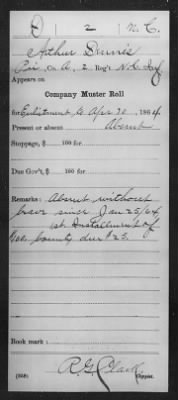 D 2 N. C.
Arthur Dennis
Pvt., Co. A, 2 Reg't N.C. Inf
Appears on
Company Muster Roll
for Enlistment to Apr 30, 1864
Present or absent Absent
Stoppage, $ 100 for
Due Gov't, $ 100 for
Remarks: Absent without
leave since Jan 25/64
1st Installment of
bounty due $25.
Book mark:
R G Clark
(358) Copyist.